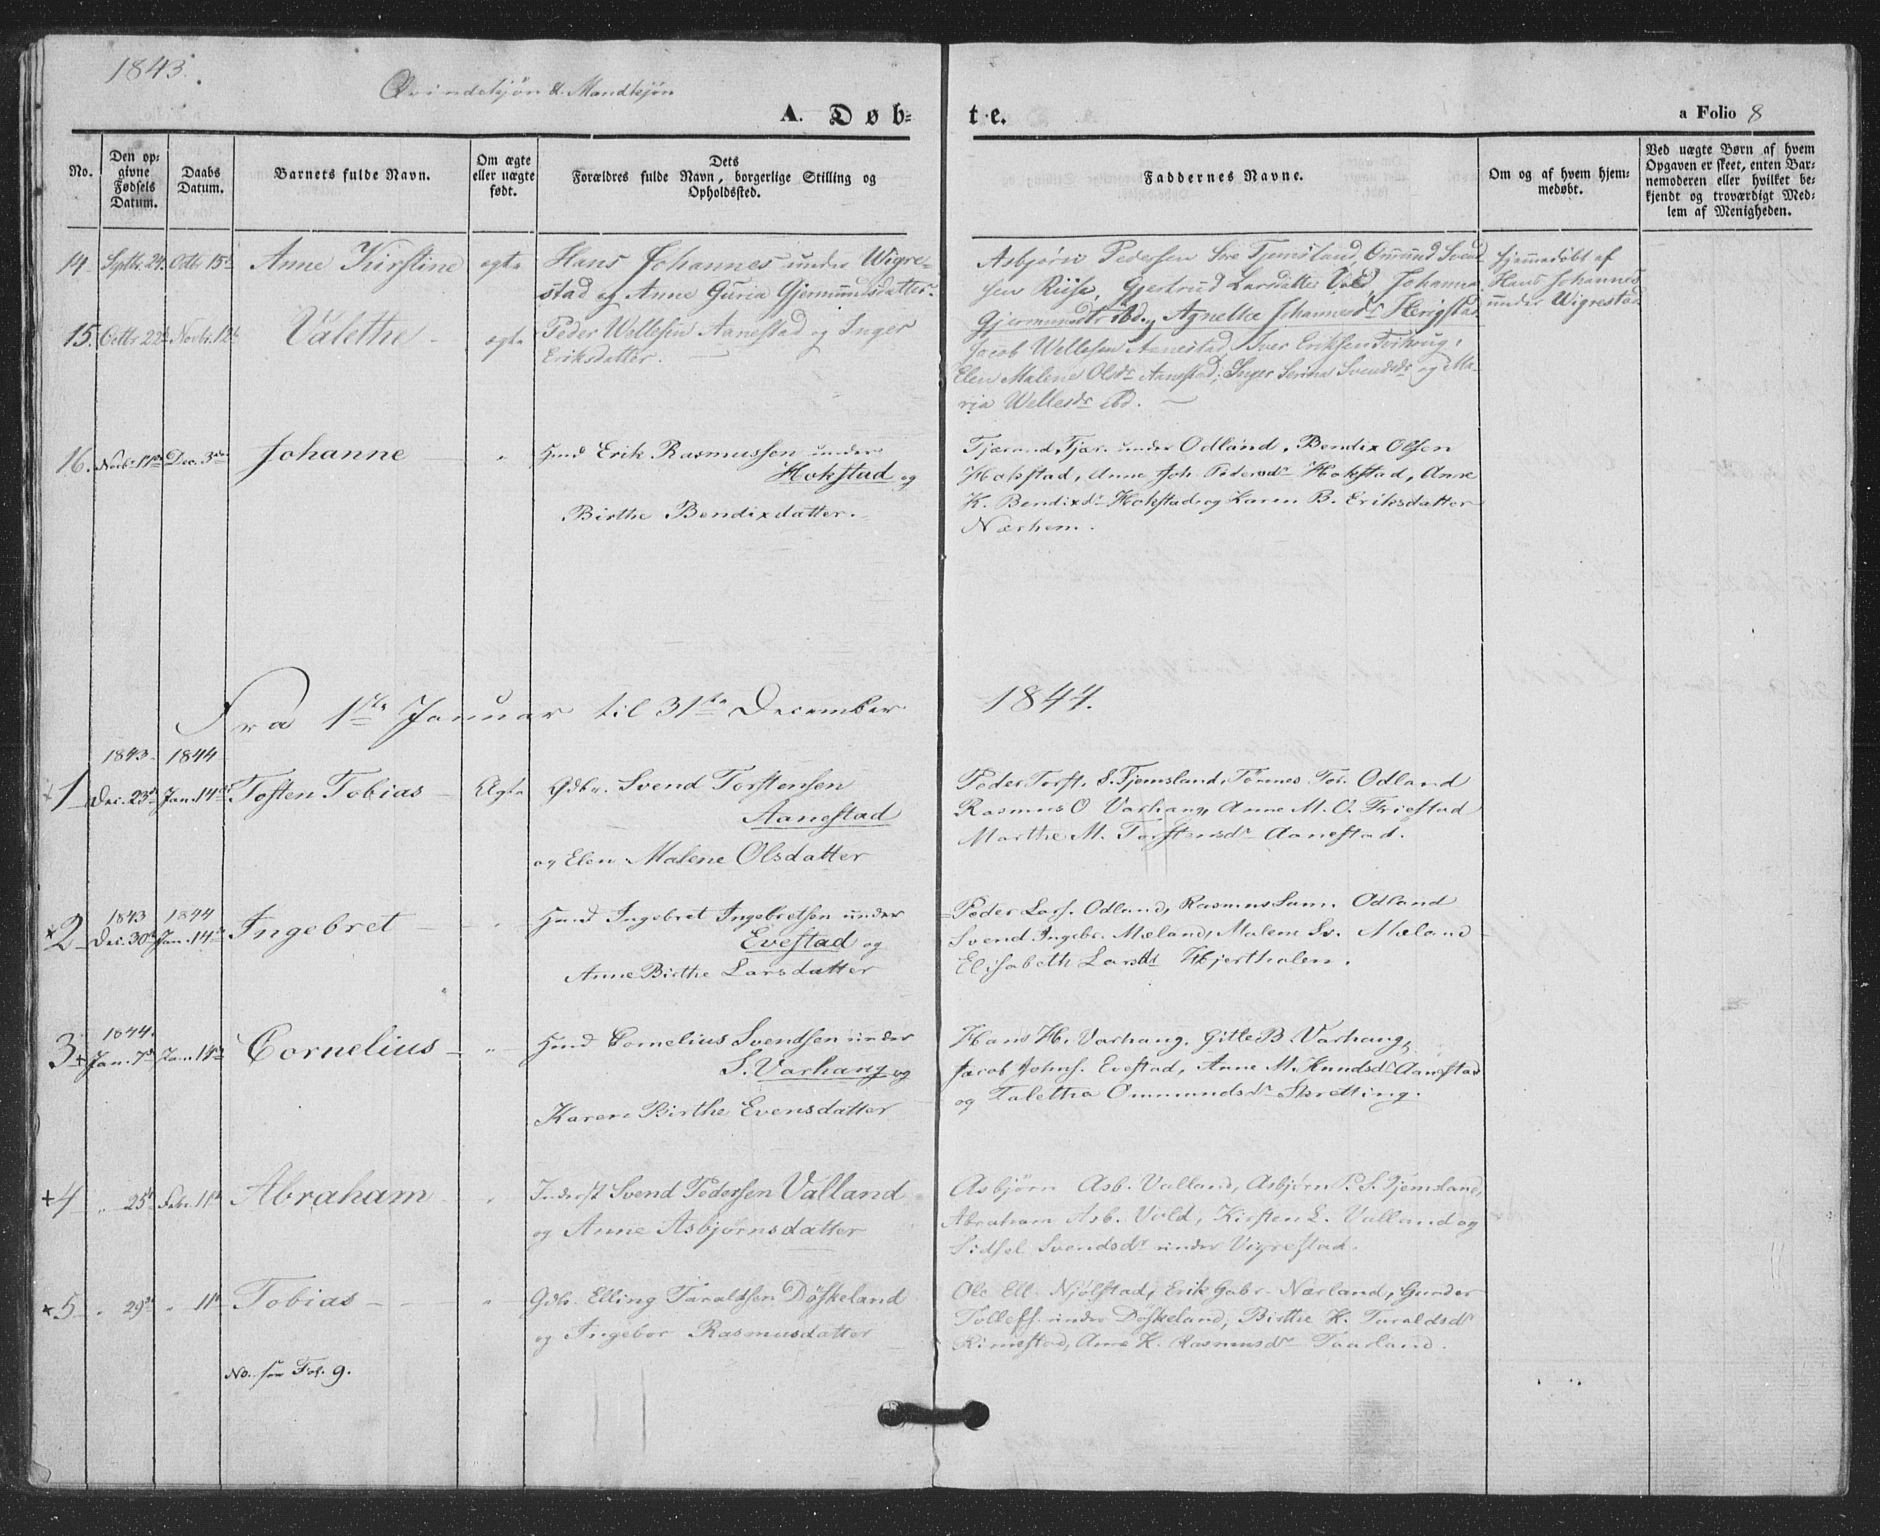 1843.
Qvindekjøn & Mandkjøn
A. Døb-
te.
a Folio 8
No.
Den op-
givne
Fødsels
Datum.
Daabs
Datum.
Barnets fulde Navn.
Om ægte
eller uægte
født.
Dets
Forældres fulde Navn, borgerlige Stilling og
Opholdssted.
Faddernes Navne.
Om og af hvem hjem-
medøbt.
Ved uægte Børn af hvem
Opgaven er skeet, enten Bar-
nemoderen eller hvilket be-
kjendt og troværdigt Med-
lem af Menigheden.
14 Septbr. 24. Octbr 15de Anne Kirstine ægte Hans Johannes under Wigre-
stad og Anne Guria Gjermundsdatter.
Asbjørn Pedersen Sre Tjemsland, Ommund Svend
sen Riise, Gjertrud Larsdatter Vold, Johanna
Gjermundsdtr ibd. og Agnethe Johannesdr Herigstad
hjemmedøbt af
Hans Johannes
under Wigrestad
15. Octbr 22de Novbr. 12te Valethe ægte Peder Wellesen Aanestad og Inger
Eriksdatter.
Jacob Wellesen Aanestad, Iver Eriksen
Elen Malene Olsdr Aanestad, Inger Serina Svendsdr og Ma-
ria Wellesdr ibd.
16. Novbr 11te Dec. 3die Johanne " Huusmd Erik Rasmussen under
Hokstad og
Birthe Bendixdatter.
Tjærand Tjær. under Odland, Bendix Olsen
Hokstad, Anne Joh. Pedersdr Hokstad, Anne
K. Bendixdr Hokstad og Karen B. Eriksdatter
Nærhem.
Fra 1ste Januar til 31te December
1844.
1843. 1844
1 Dec. 23de Jan. 14de Tosten Tobias Ægte Gdbr. Svend Torstensen
Aanestad
og Elen Malene Olsdatter
Peder Torst. S. Tjemsland, Tønnes Tor. Odland
Rasmus O Varhang, Anne M. O. Friestad
Marthe M. Torstensdr Aanestad.
1843 1844
2 Dec. 30te Jan. 14de Ingebret " Huusmd Ingebret Ingebretsen under
Evestad og
Anne Birthe Larsdatter
Peder Lars. Odland, Rasmus Sam. Odland
Svend Ingebr. Mæland, Malene Sv. Mæland
Elisabeth Larsdr Hjerthalen.
1844.
3 Jan. 7de Jan. 14de Cornelius " Huusmd Cornelius Svendsen under
S. Varhang og
Karen Birthe Evensdatter
Hans H. Varhang, Gitle B. Varhang,
Jacob Johns. Evestad, Anne M. Knudsdr Aanestad
og Taletha Ommundsdr Skretting.
4 " 25de Febr. 11te Abraham " Inderst Svend Pedersen Valland
og Anne Asbjørnsdatter
Asbjørn Asb. Valland, Asbjørn P. S. Tjemsland,
Abraham Asb. Vold, Kirsten L. Valland og
Sidsel Svendsdr under Vigrestad.
5 " 29de " 11te Tobias " Gdbr. Elling Taraldsen Døskeland
og Ingebor Rasmusdatter
Ole Ell. Njølstad, Erik Gabr. Nærland, Gunder
Tolleff. under Døskeland, Birthe K. Taraldsdr
Rimestad, Anne K. Rasmusdr Taarland.
No. see Fol. 9.